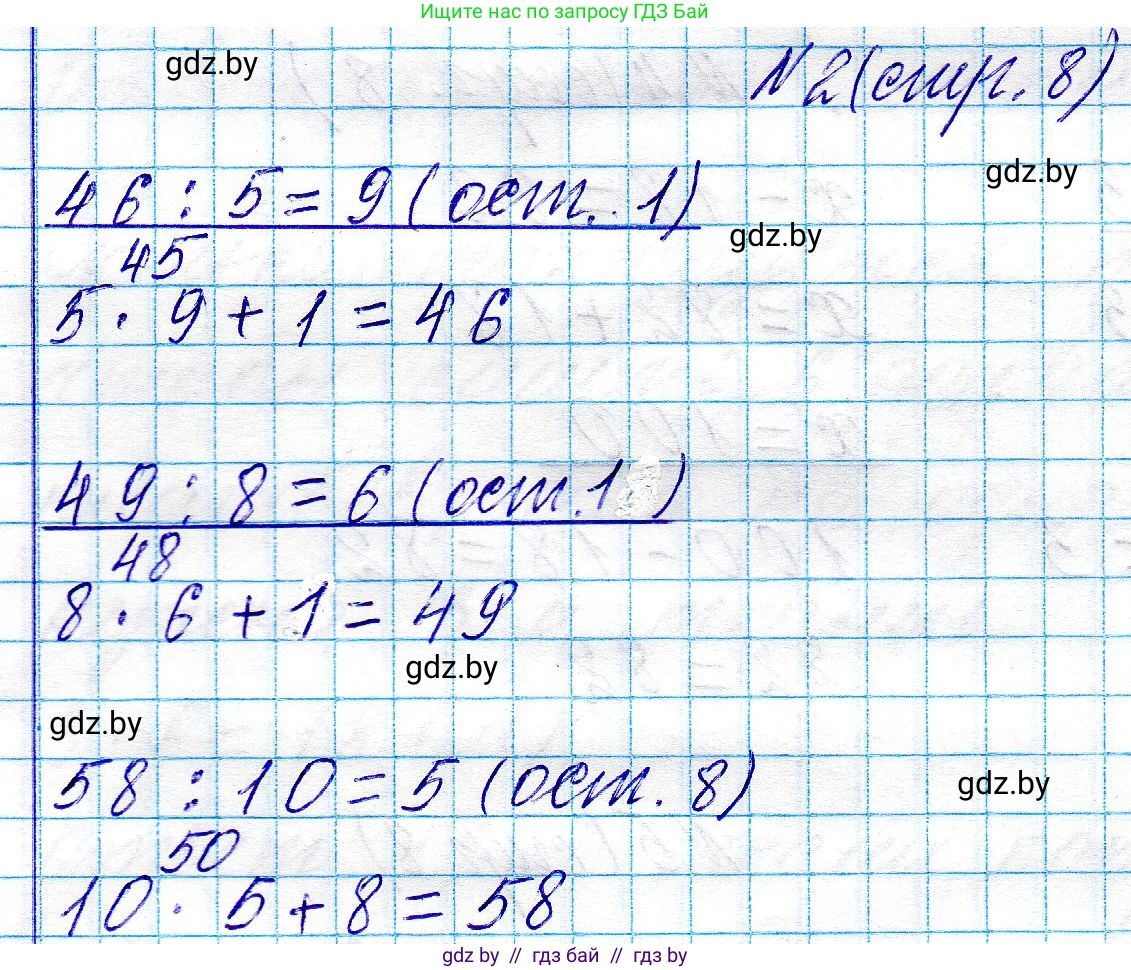 Ищите нас по запросу ГДЗ Бай
gdz.by
№2 (стр. 8)
gdz.by
46 : 5 = 9 (ост. 1)
gdz.by
45
5 · 9 + 1 = 46
49 : 8 = 6 (ост. 1)
48
8 · 6 + 1 = 49
gdz.by
gdz.by
58 : 10 = 5 (ост. 8)
gdz.by
50
10 · 5 + 8 = 58
gdz.by // гдз бай // gdz.by